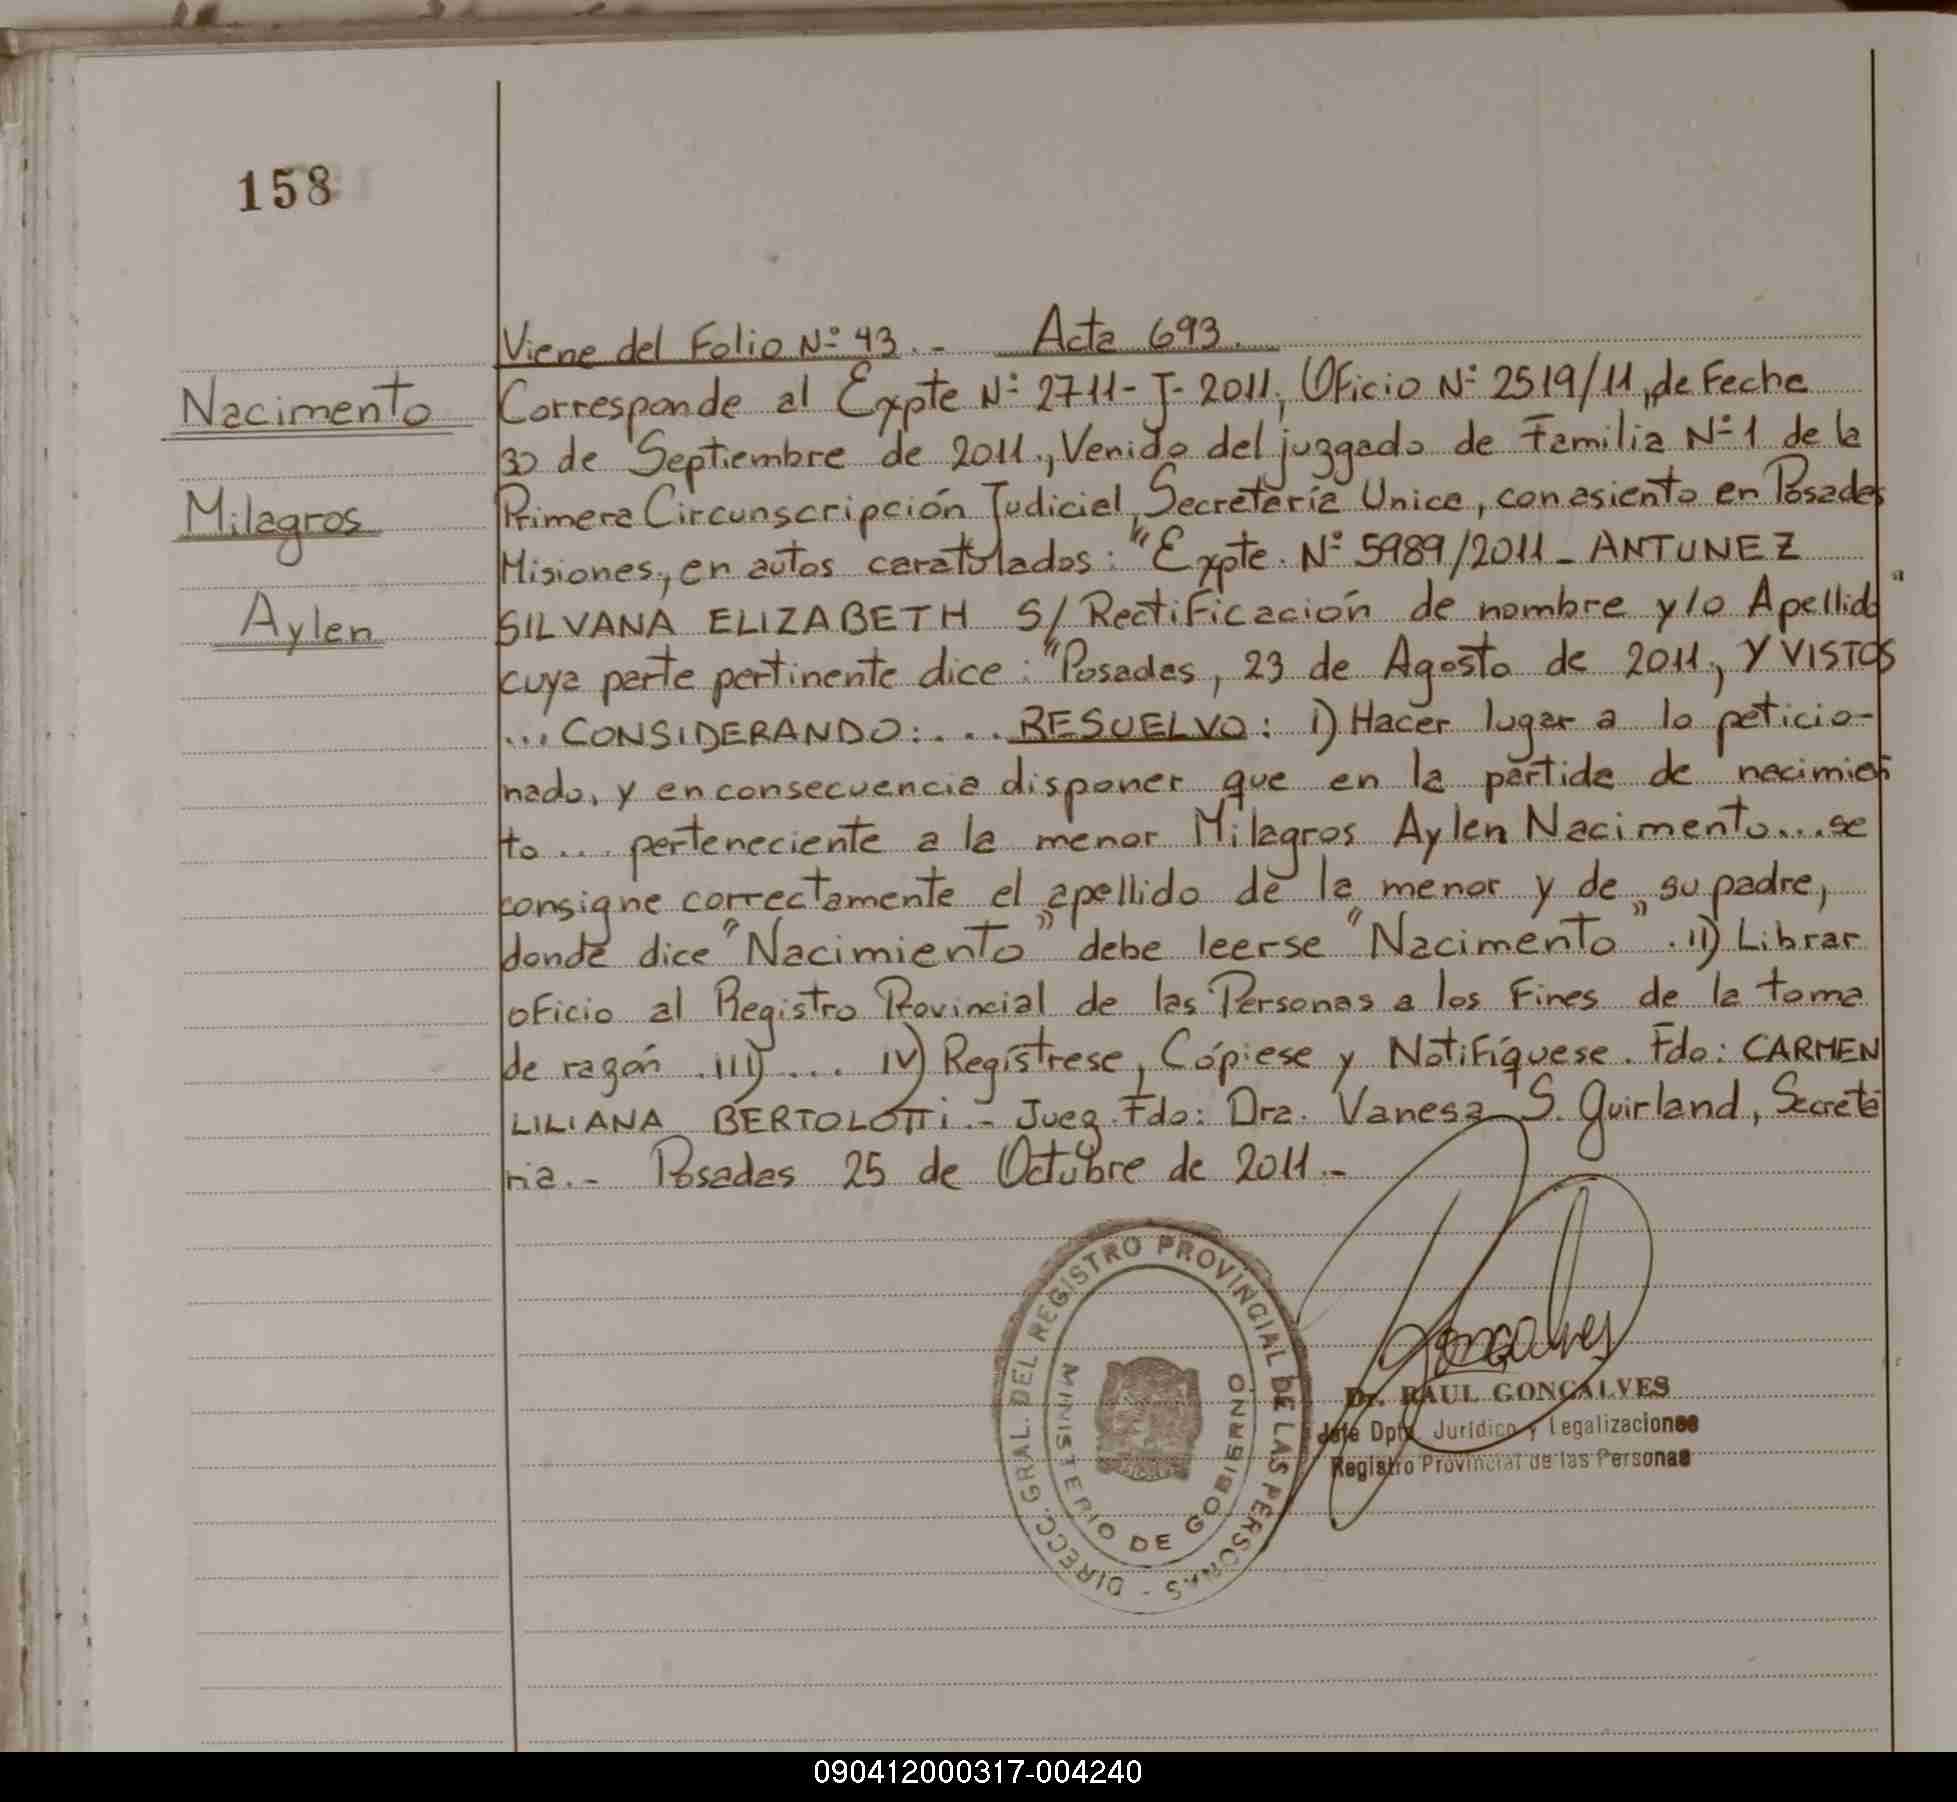 158
Viene del Folio Nº 43.- Acta 693.
Nacimento
Milagros
Aylen
Corresponde al Expte Nº 2711-J-2011, Oficio Nº 2519/11, de Fecha
30 de Septiembre de 2011., Venido del juzgado de Familia Nº 1 de la
Primera Circunscripción Judicial, Secretaría Unica, con asiento en Posadas
Misiones, en autos caratulados: "Expte. Nº 5989/2011 - ANTUNEZ
SILVANA ELIZABETH S/ Rectificación de nombre y/o Apellido"
cuya parte pertinente dice: "Posadas, 23 de Agosto de 2011., Y VISTOS
... CONSIDERANDO: .... RESUELVO: I) Hacer lugar a lo peticio-
nado, y en consecuencia disponer que en la partida de nacimien
to .... perteneciente a la menor Milagros Aylen Nacimento... se
consigne correctamente el apellido de la menor y de su padre,
donde dice "Nacimiento" debe leerse "Nacimento". II) Librar
oficio al Registro Provincial de las Personas a los Fines de la toma
de razón .III) .... IV) Regístrese, Cópiese y Notifíquese. Fdo: CARMEN
LILIANA BERTOLOTTi.- Juez. Fdo: Dra. Vanesa S. Guirland, Secreta
ria.- Posadas 25 de Octubre de 2011.-
DIRECC. GRAL. DEL REGISTRO PROVINCIAL DE LAS PERSONAS -
MINISTERIO DE GOBIERNO
Goncalves
Dr. RAUL GONCALVES
Jefe Dpto. Jurídico y Legalizaciones
Registro Provincial de las Personas
090412000317-004240